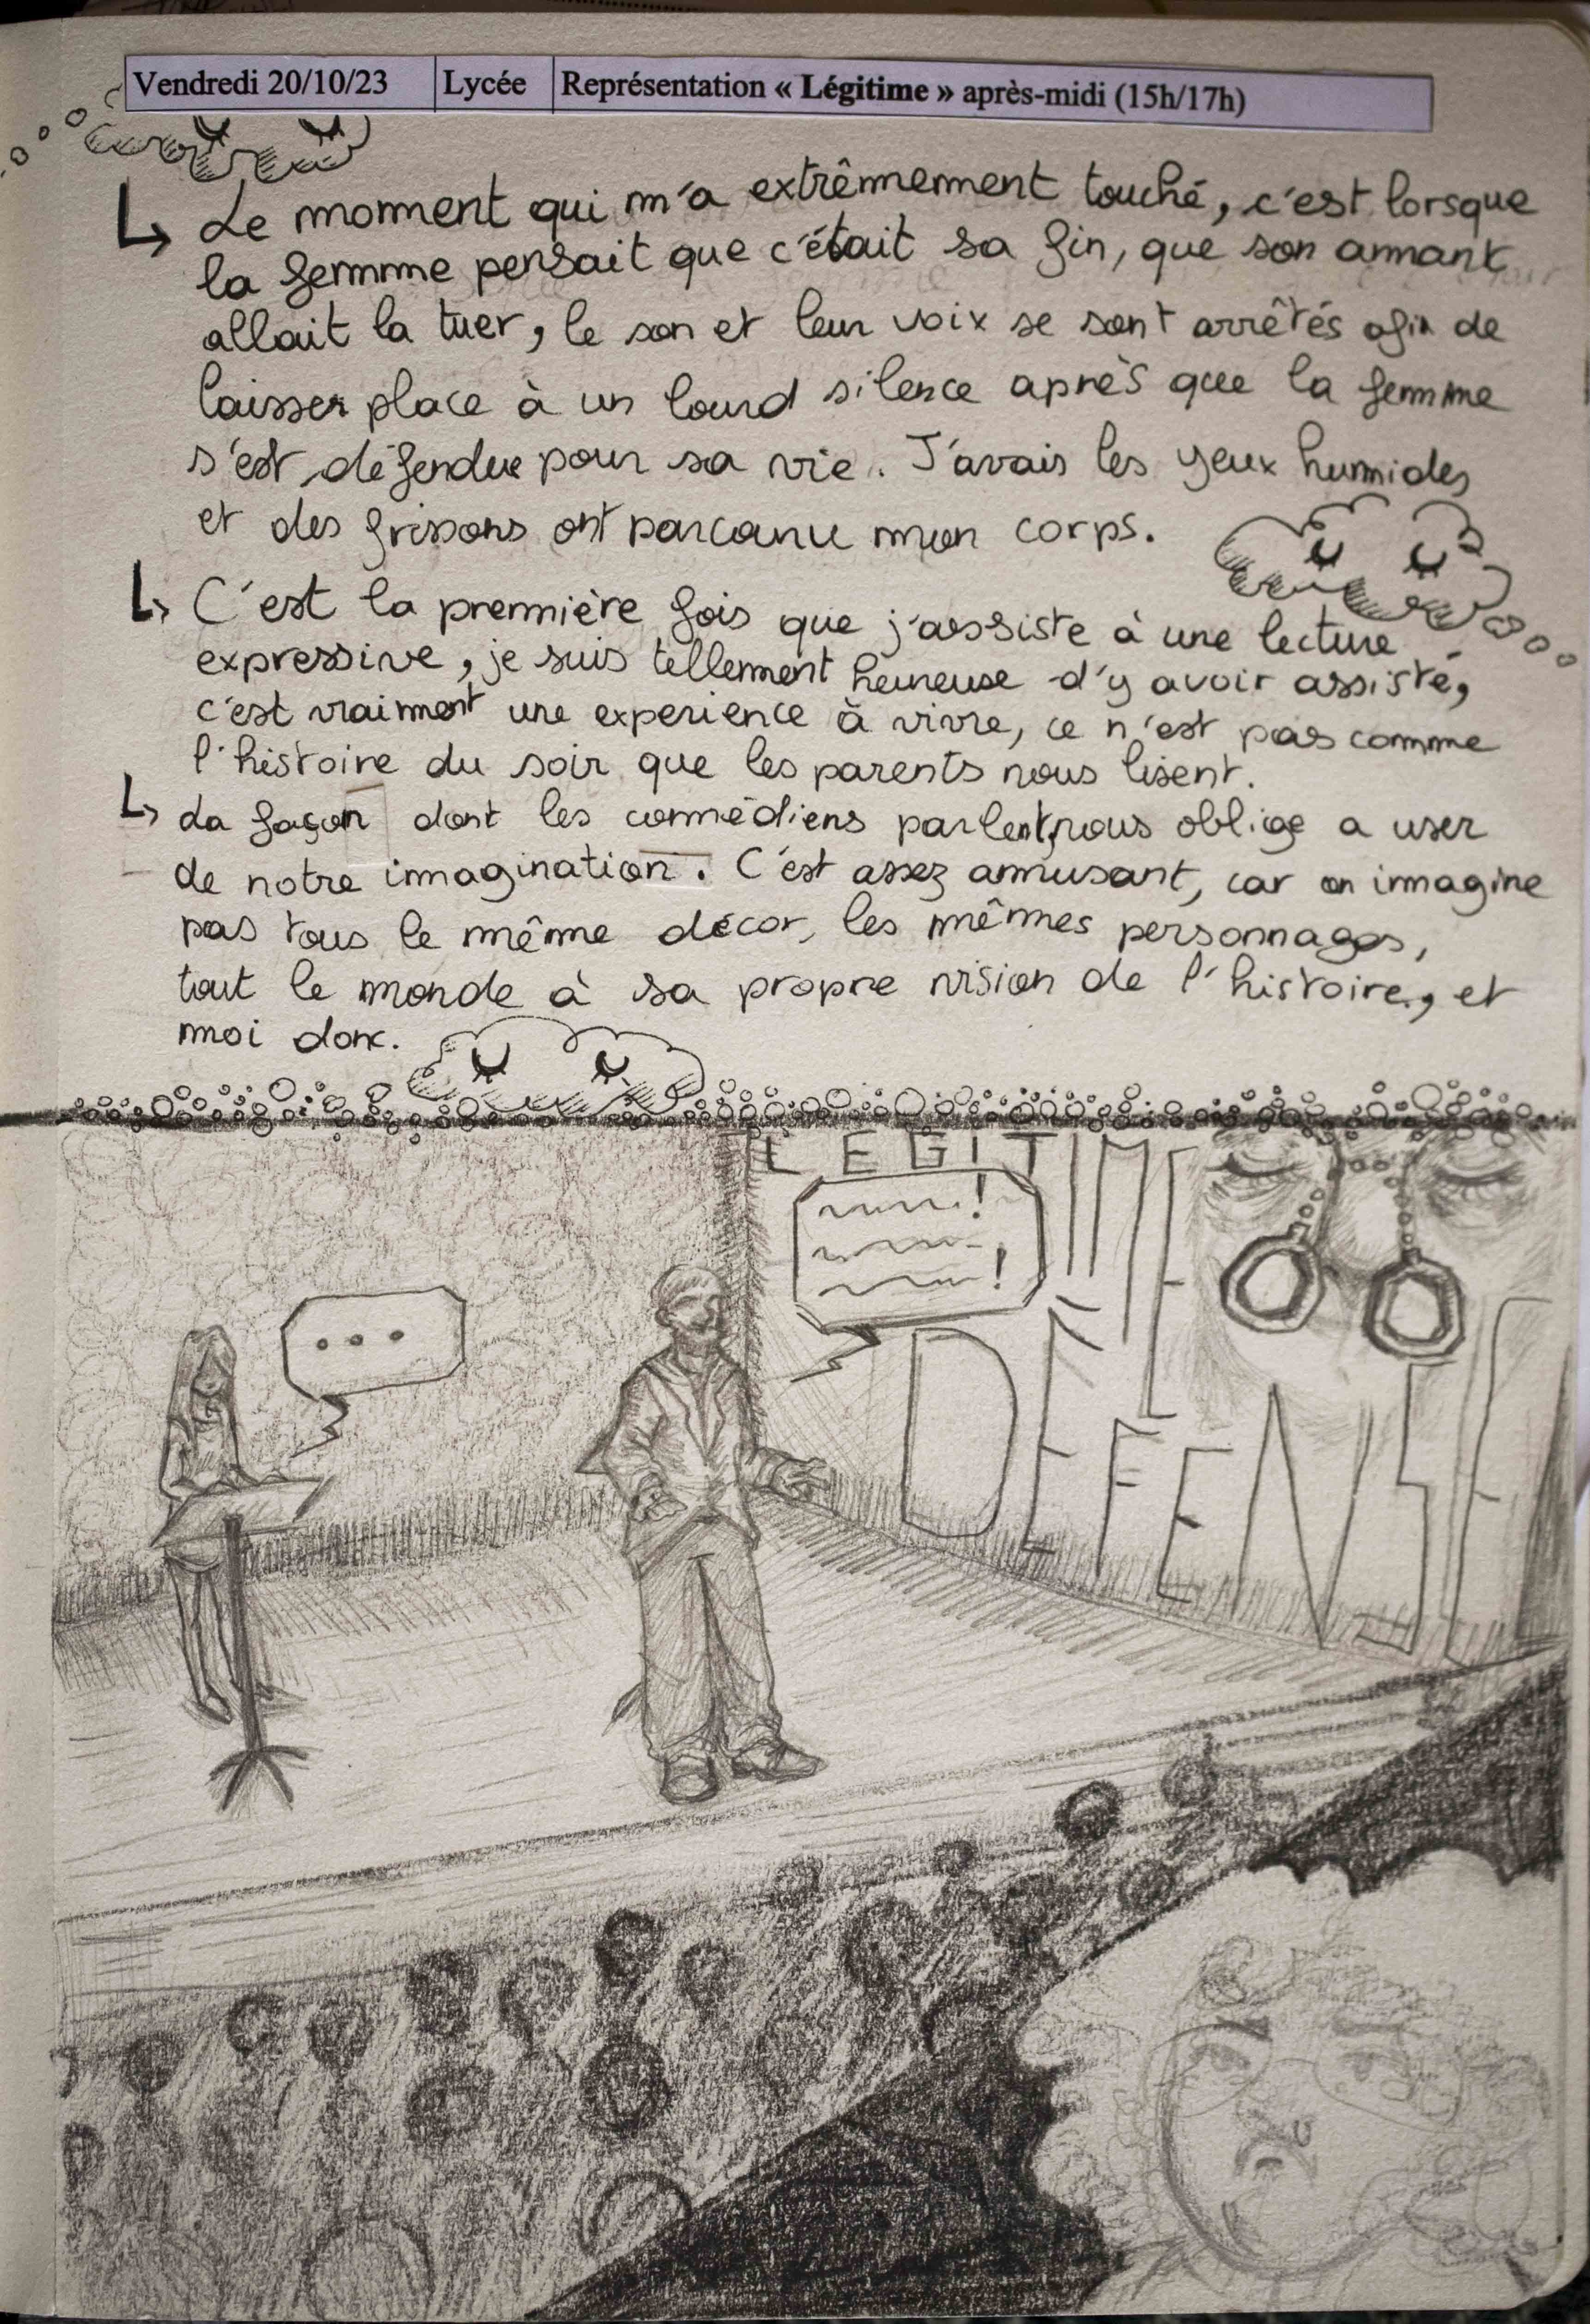 Vendredi 20/10/23 Lycée Représentation « Légitime » après-midi (15h/17h)
Le moment qui m'a extrêmement touché, c'est lorsque
la femme pensait que c'était sa fin, que son amant
allait la tuer, le son et leur voix se sont arrêtés afin de
laisser place à un lourd silence après que la femme
s'est défendue pour sa vie. J'avais les yeux humides
et des frissons ont parcouru mon corps.
C'est la première fois que j'assiste à une lecture
expressive, je suis tellement heureuse d'y avoir assisté,
c'est vraiment une experience à vivre, ce n'est pas comme
l'histoire du soir que les parents nous lisent.
La façon dont les comédiens parlent, nous oblige a user
de notre imagination. C'est assez amusant, car on imagine
pas tous le même décor, les mêmes personnages,
tout le monde à sa propre vision de l'histoire, et
moi donc.
LÉGITIME
...
! !
DÉFENSE